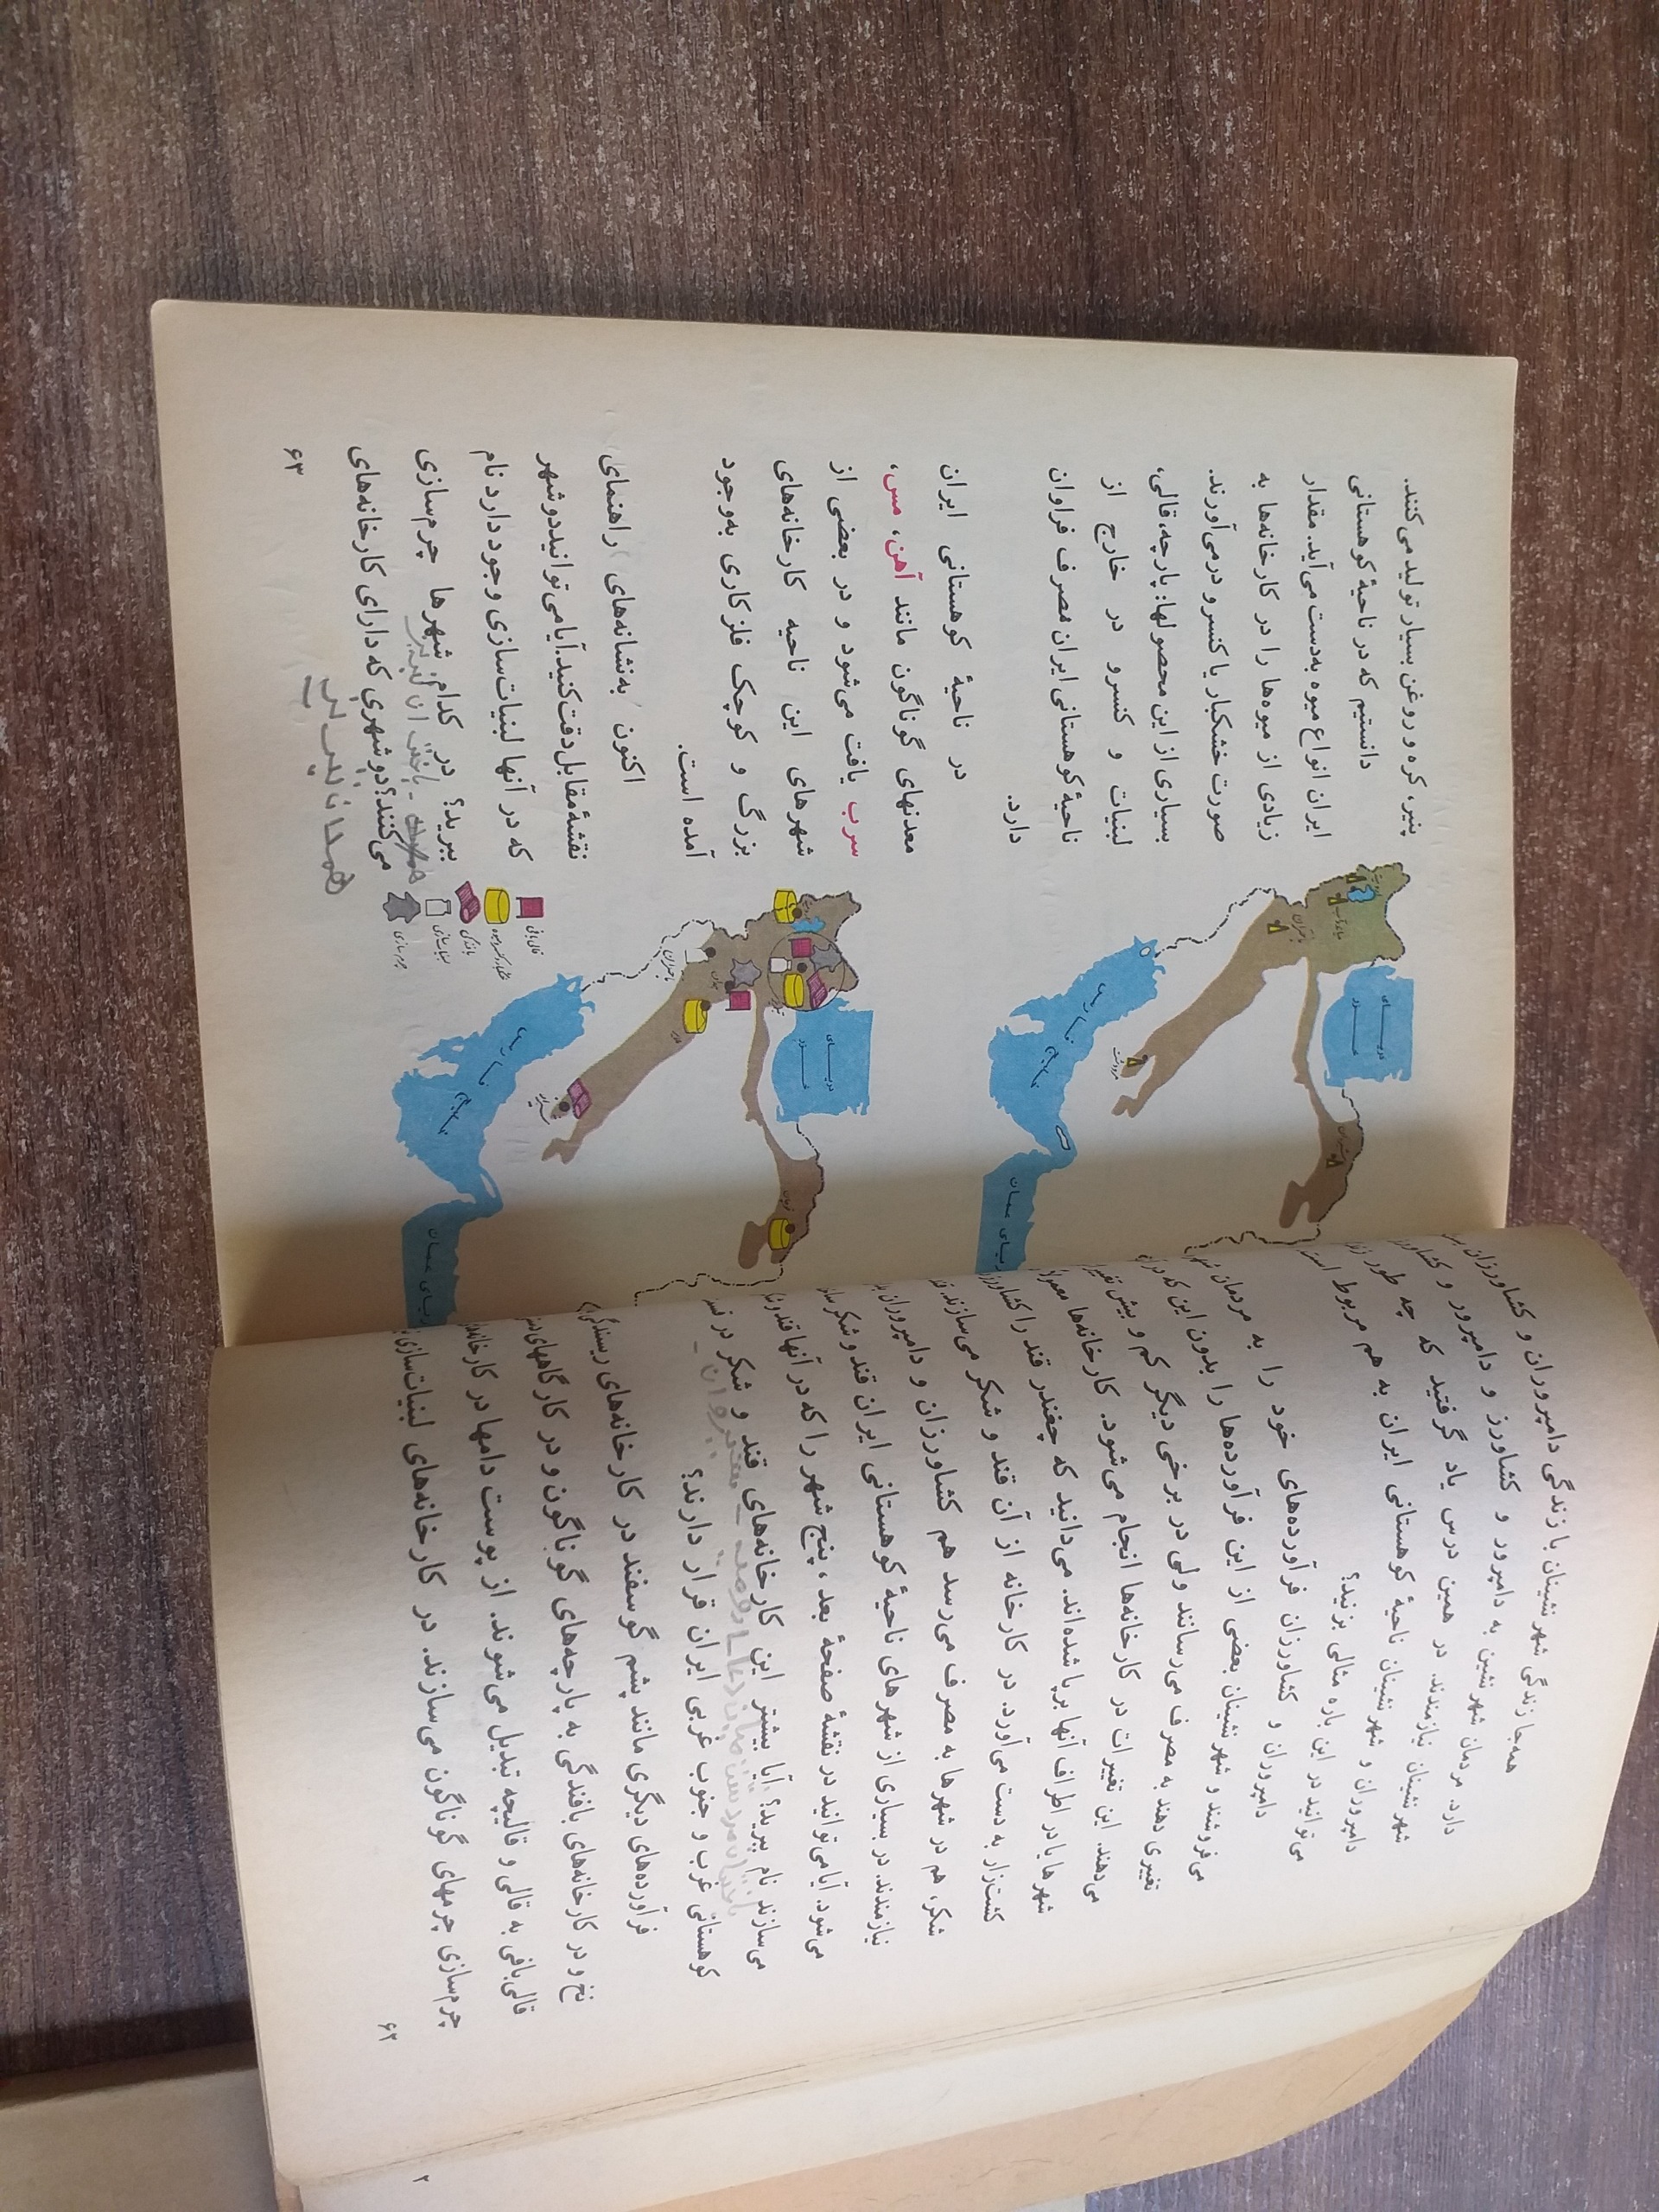 همه‌جا زندگی شهرنشینان با زندگی دامپروران و کشاورزان
دارد. مردمان شهرنشین به دامپرور و کشاورز و دامپرور و
شهرنشینان نیازمندند. در همین درس یاد گرفتید که چه طور
دامپروران و شهرنشینان ناحیهٔ کوهستانی ایران به هم مربوط
می‌توانید در این باره مثالی بزنید؟
دامپروران و کشاورزان فرآورده‌های خود را به مردمان
می‌فروشند و شهرنشینان بعضی از این فرآورده‌ها را بدون این که در
تغییری دهند به مصرف می‌رسانند ولی در برخی دیگر کم و بیش تغییر
می‌دهند. این تغییرات در کارخانه‌ها انجام می‌شود. کارخانه‌ها
شهرها یا در اطراف آنها برپا شده‌اند. می‌دانید که چغندر قند را
کشت‌زار به دست می‌آورد. در کارخانه از آن قند و شکر می‌سازند.
شکر، هم در شهرها به مصرف می‌رسد هم کشاورزان و دامپروران
نیازمندند. در بسیاری از شهرهای ناحیهٔ کوهستانی ایران قند و شکر
می‌شود. آیا می‌توانید در نقشهٔ صفحهٔ بعد، پنج شهر را که در آنها قند و
می‌سازند نام ببرید؟ آیا بیشتر این کارخانه‌های قند و شکر در
کوهستانی غرب و جنوب غربی ایران قرار دارند؟
فرآورده‌های دیگری مانند پشم گوسفند در کارخانه‌های ریسندگی
نخ و در کارخانه‌های بافندگی به پارچه‌های گوناگون و در کارگاههای
قالی‌بافی به قالی و قالیچه تبدیل می‌شوند. از پوست دامها در
چرم‌سازی چرمهای گوناگون می‌سازند. در کارخانه‌های لبنیات‌سازی
۶۲
پنیر، کره و روغن بسیار تولید می‌کنند.
دانستیم که در ناحیهٔ کوهستانی
ایران انواع میوه به‌دست می‌آید. مقدار
زیادی از میوه‌ها را در کارخانه‌ها به
صورت خشکبار یا کنسرو درمی‌آورند.
بسیاری از این محصولها: پارچه، قالی،
لبنیات و کنسرو در خارج از
ناحیهٔ کوهستانی ایران مصرف فراوان
دارد.
در ناحیهٔ کوهستانی ایران
معدنهای گوناگون مانند آهن، مس،
سرب یافت می‌شود و در بعضی از
شهرهای این ناحیه کارخانه‌های
بزرگ و کوچک فلزکاری به‌وجود
آمده است.
اکنون به نشانه‌های (راهنمای)
نقشهٔ مقابل دقت کنید. آیا می‌توانید دو شهر
که در آنها لبنیات‌سازی وجود دارد نام
ببرید؟ در کدام شهرها چرم‌سازی
می‌کنند؟ دو شهری که دارای کارخانه‌های
۶۳
دریای
خزر
خلیج فارس
دریای عمان
دریای
خزر
خلیج فارس
دریای عمان
قالی‌بافی
بافندگی
لبنیاتسازی
چرم‌سازی